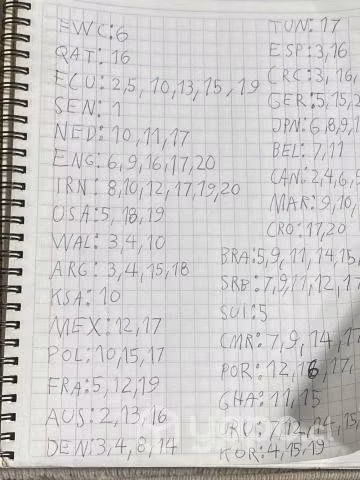 FWC:6
QAT: 16
ECU: 2,5, 10,13, 15, 19
SEN: 1
NED: 10,11,17
ENG: 6,9,16,17,20
IRN: 8,10,12,17,19,20
USA:5, 18,19
WAL: 3,4,10
ARG: 3,4,15,18
KSA: 10
MEX:12,17
POL:10,15,17
FRA:5,12,19
AUS: 2,13,16
DEN:3,4,8,14
TUN: 17
ESP: 3,16
CRC: 3, 16,
GER: 5,15,
JPN: 6,8,9,
BEL: 7,11
CAN: 2,4,6,
MAR: 9,10,
CRO: 17,20
BRA:5,9,11,14,15,
SRB: 7,9,11,12,
SUI:5
CMR: 7,9,14,
POR: 12,16,17,
GHA: 11,15
URU: 7,12,14,15,
KOR: 4,15,19